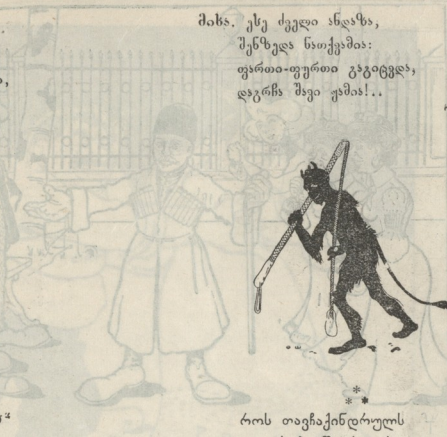 მისა. ესე ძველი ანდაზა,
შენზედა ნათქვამია:
ფართი-ფურთი გაგიცვდა,
დაგრჩა შავი ჟამია!..
როს თავჩაქინდრულს